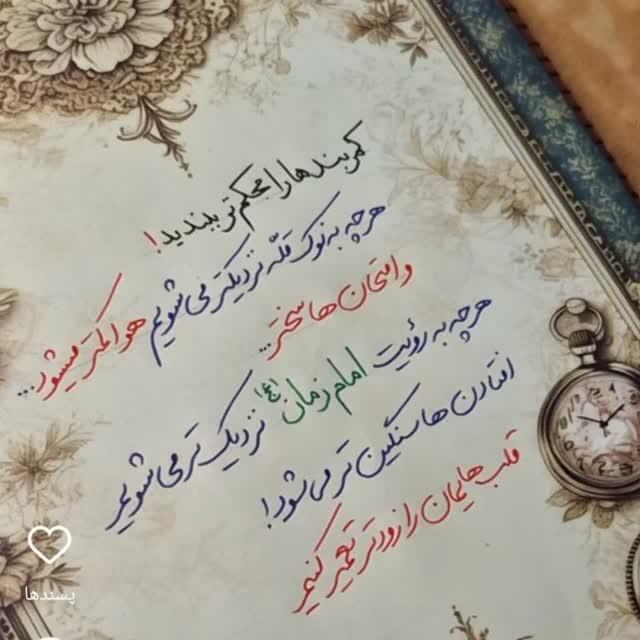 کمربندها را محکم‌تر ببندید!
هرچه به نوک قلّه نزدیکتر می‌شویم هوا کمتر میشود...
و امتحان‌ها سختر...
هرچه به رؤیت امام زمان (ع) نزدیک‌تر می‌شویم
افتادن‌ها سنگین‌تر می‌شود!
قلب‌هایمان را زودتر تعمیر کنیم
پسندها